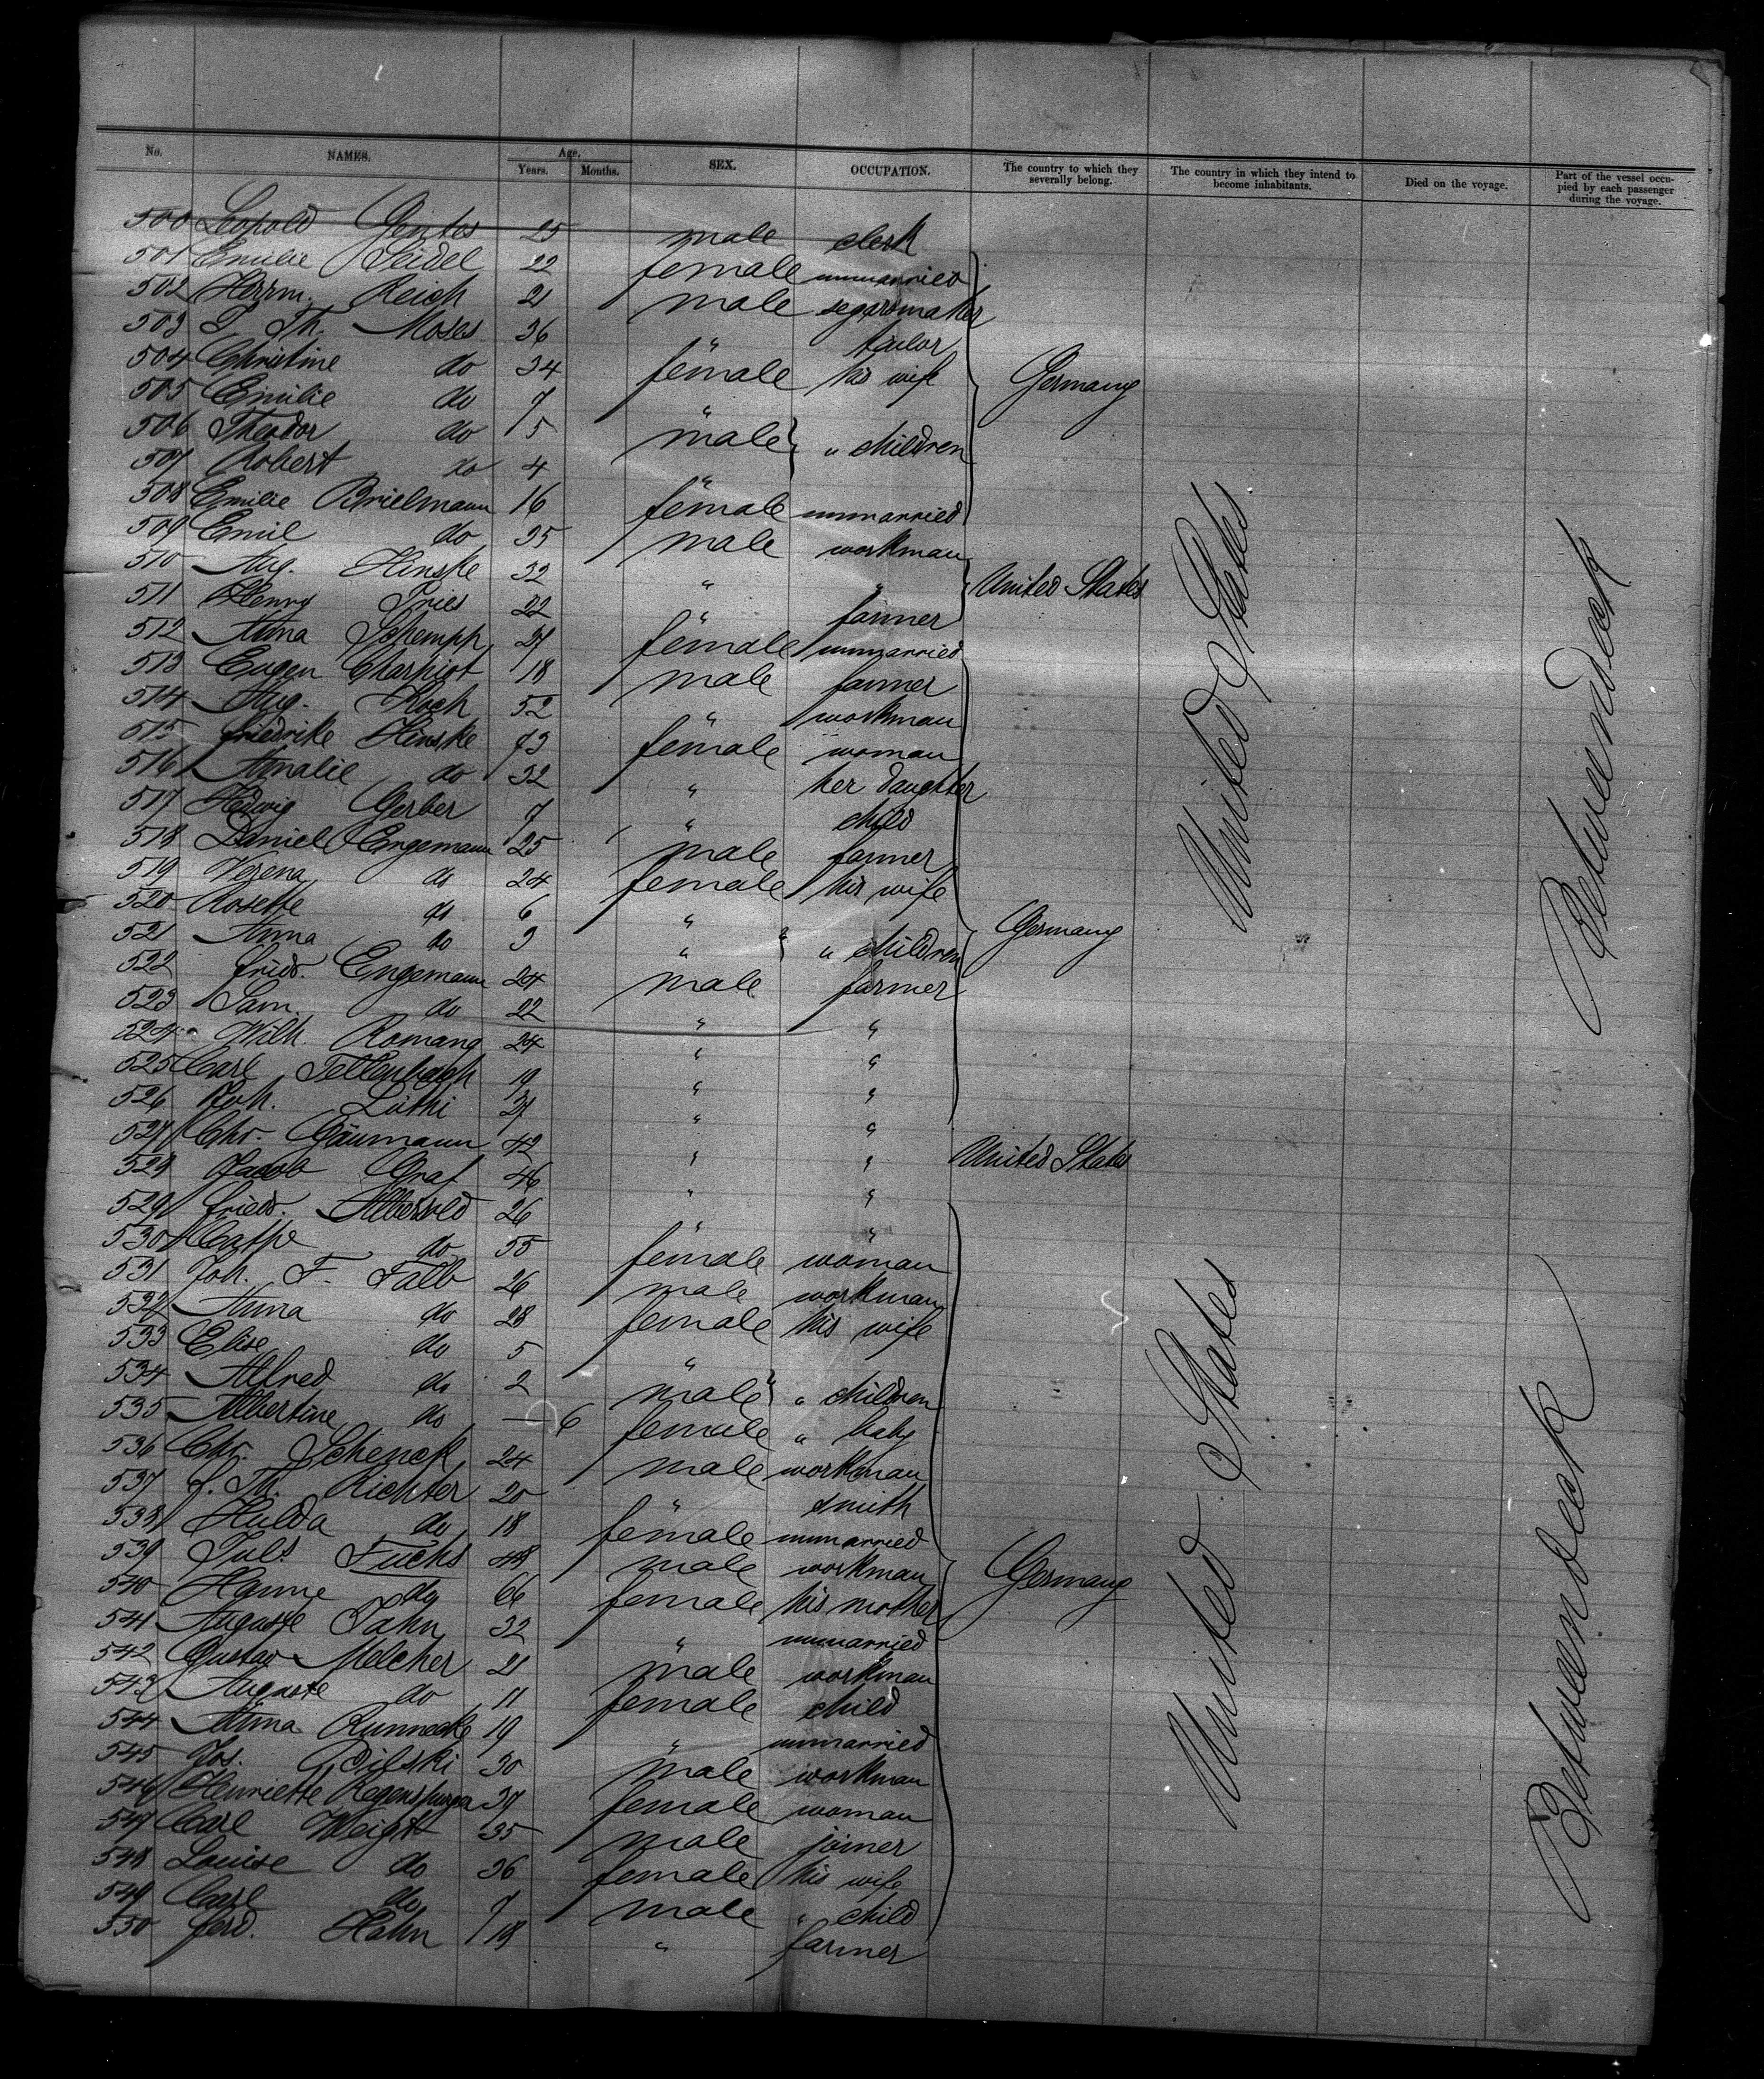 No. NAMES. Age, Years. Months. SEX. OCCUPATION. The country to which they severally belong. The country in which they intend to become inhabitants. Died on the voyage. Part of the vessel occupied by each passenger during the voyage.
500 Leopold Gentes 25 male clerk
501 Emilie Seidel 22 female unmarried
502 Herrm. Reich 21 male segarsmaker
503 Th. Moses 36 " tailor
504 Christine do 34 female his wife Germany
505 Emilie do 7 "
506 Theodor do 5 male } " children
507 Robert do 4 "
508 Emilie Brielmann 16 female unmarried
509 Emil do 25 male workman
510 Aug. Hinske 32 " " United States
511 Henry Fries 22 " farmer
512 Anna Schempp 21 female unmarried
513 Eugen Charpiot 18 male farmer
514 Aug. Koch 52 " workman
515 Friedrike Hinske 73 female woman
516 Amalie do 32 " her daughter
517 Hedwig Gerber 7 " child
518 Daniel Engemann 25 male farmer
519 Verena do 24 female his wife
520 Rosette do 6 "
521 Anna do 3 " } " children Germany
522 Fried. Engemann 24 male farmer
523 Sam. do 22 " "
524 Wilh. Romang 24 " "
525 Carl Tellenbach 19 " "
526 Joh. Lüthi 21 " "
527 Chr. Gäumann 42 " " United States
528 Jacob Graf 46 " "
529 Fried. Albersold 26 " "
530 Cathe do 55 female woman
531 Joh. F. Falb 26 male workman
532 Anna do 28 female his wife
533 Elise do 5 "
534 Alfred do 2 male } " children
535 Albertine do — 6 female " baby
536 Chr. Schenck 24 male workman
537 Th. Richter 20 " smith
538 Hulda do 18 female unmarried
539 Juls Fuchs 48 male workman Germany
540 Hanne do 66 female his mother
541 Auguste Jahn 32 " unmarried
542 Gustav Melcher 21 male workman
543 Auguste do 11 female child
544 Anna Runnecke 19 " unmarried
545 Jos. Bilski 30 male workman
546 Henriette Regensburger 37 female woman
547 Carl Weigt 35 male joiner
548 Louise do 36 female his wife
549 Carl do 7 male " child
550 Ferd. Hahn 18 " farmer
United States
United States
Betweendeck
Betweendeck